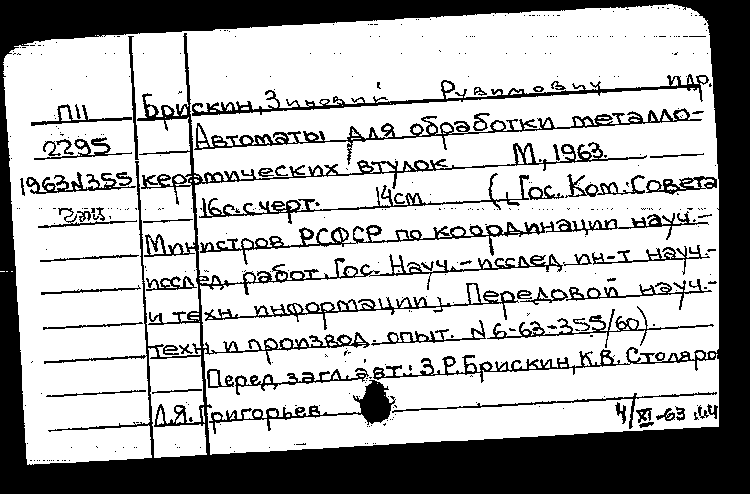 П11 Брискин, Зиновий Рувимович и др.
2295 Автоматы для обработки металло-
1963N355 керамических втулок. М., 1963.
16с.с черт. 14см (Гос. Ком. Совета
Министров РСФСР по координации науч.-
исслед. работ. Гос. Науч.-исслед. ин-т науч.-
и техн. информации]. Передовой науч.-
техн. и производ. опыт. N6-63-355/60).
Перед загл. авт.: З.Р.Брискин, К.В. Столяров
Л.Я. Григорьев.
4/XI-63